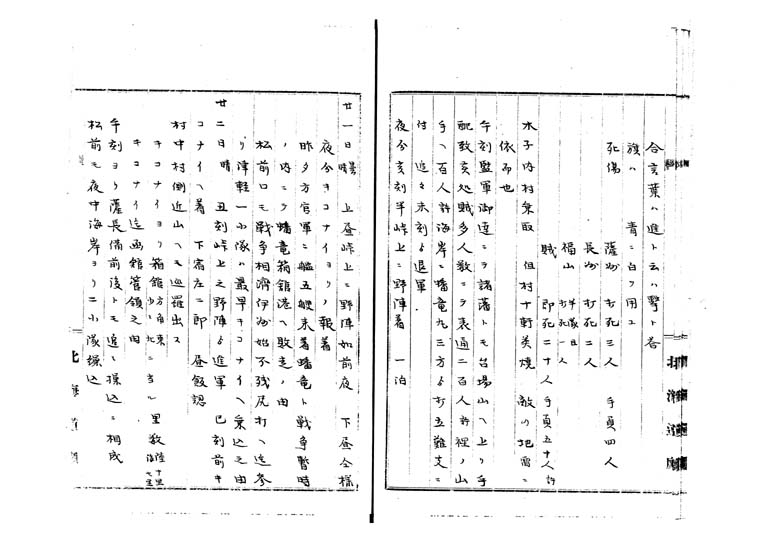 合言葉ハ進ト云ハ撃ト答
旗ハ 青ニ白ヲ用ユ
死傷 薩州 打死三人 手負四人
長州 打死二人
福山 隊長 打死一人
賊 即死二十人 手負五十人許
木子内村乗取 但村十軒美焼 敵ノ地雷ニ
依而也
午刻監軍御達ニテ諸藩トモ台場山ヘ上リ手
配致亥処賊多人数ニテ表通二百人許裡ノ山
手ヘ百人許海岸ニ蟠竜丸三方ゟ打立難支ニ
付 追々未刻ゟ退軍
夜今亥刻半峠上ニ野陣着 一泊
廿一日晴 上昼峠上ニ野陣如前夜 下昼仝様
夜今キコナイヨリノ報着
昨夕方官軍ニ艦五艘来着蟠竜ト戦争暫時
ノ内ニテ蟠竜箱舘港ヘ敗走ノ由
松前口モ戦争相済伊州始不残尻打ヘ迄参
リ津軽一小隊ハ最早キコナイヘ乗込之由
廿二日晴 丑刻峠上之野陣ゟ進軍 巳刻前キ
コナイヘ着 下宿左ニ即 昼飯認
村中村側近山ヘモ巡羅出ス
キコナイヨリ箱館方角東少シ北ニ当ル 里数陸十里海七里
キコナイ迄函館管領之由
午刻ヨリ薩長備前後トモ追々操込ニ相成
松前モ夜中海岸ヨリ二小隊操込
北海道庁
北海道庁